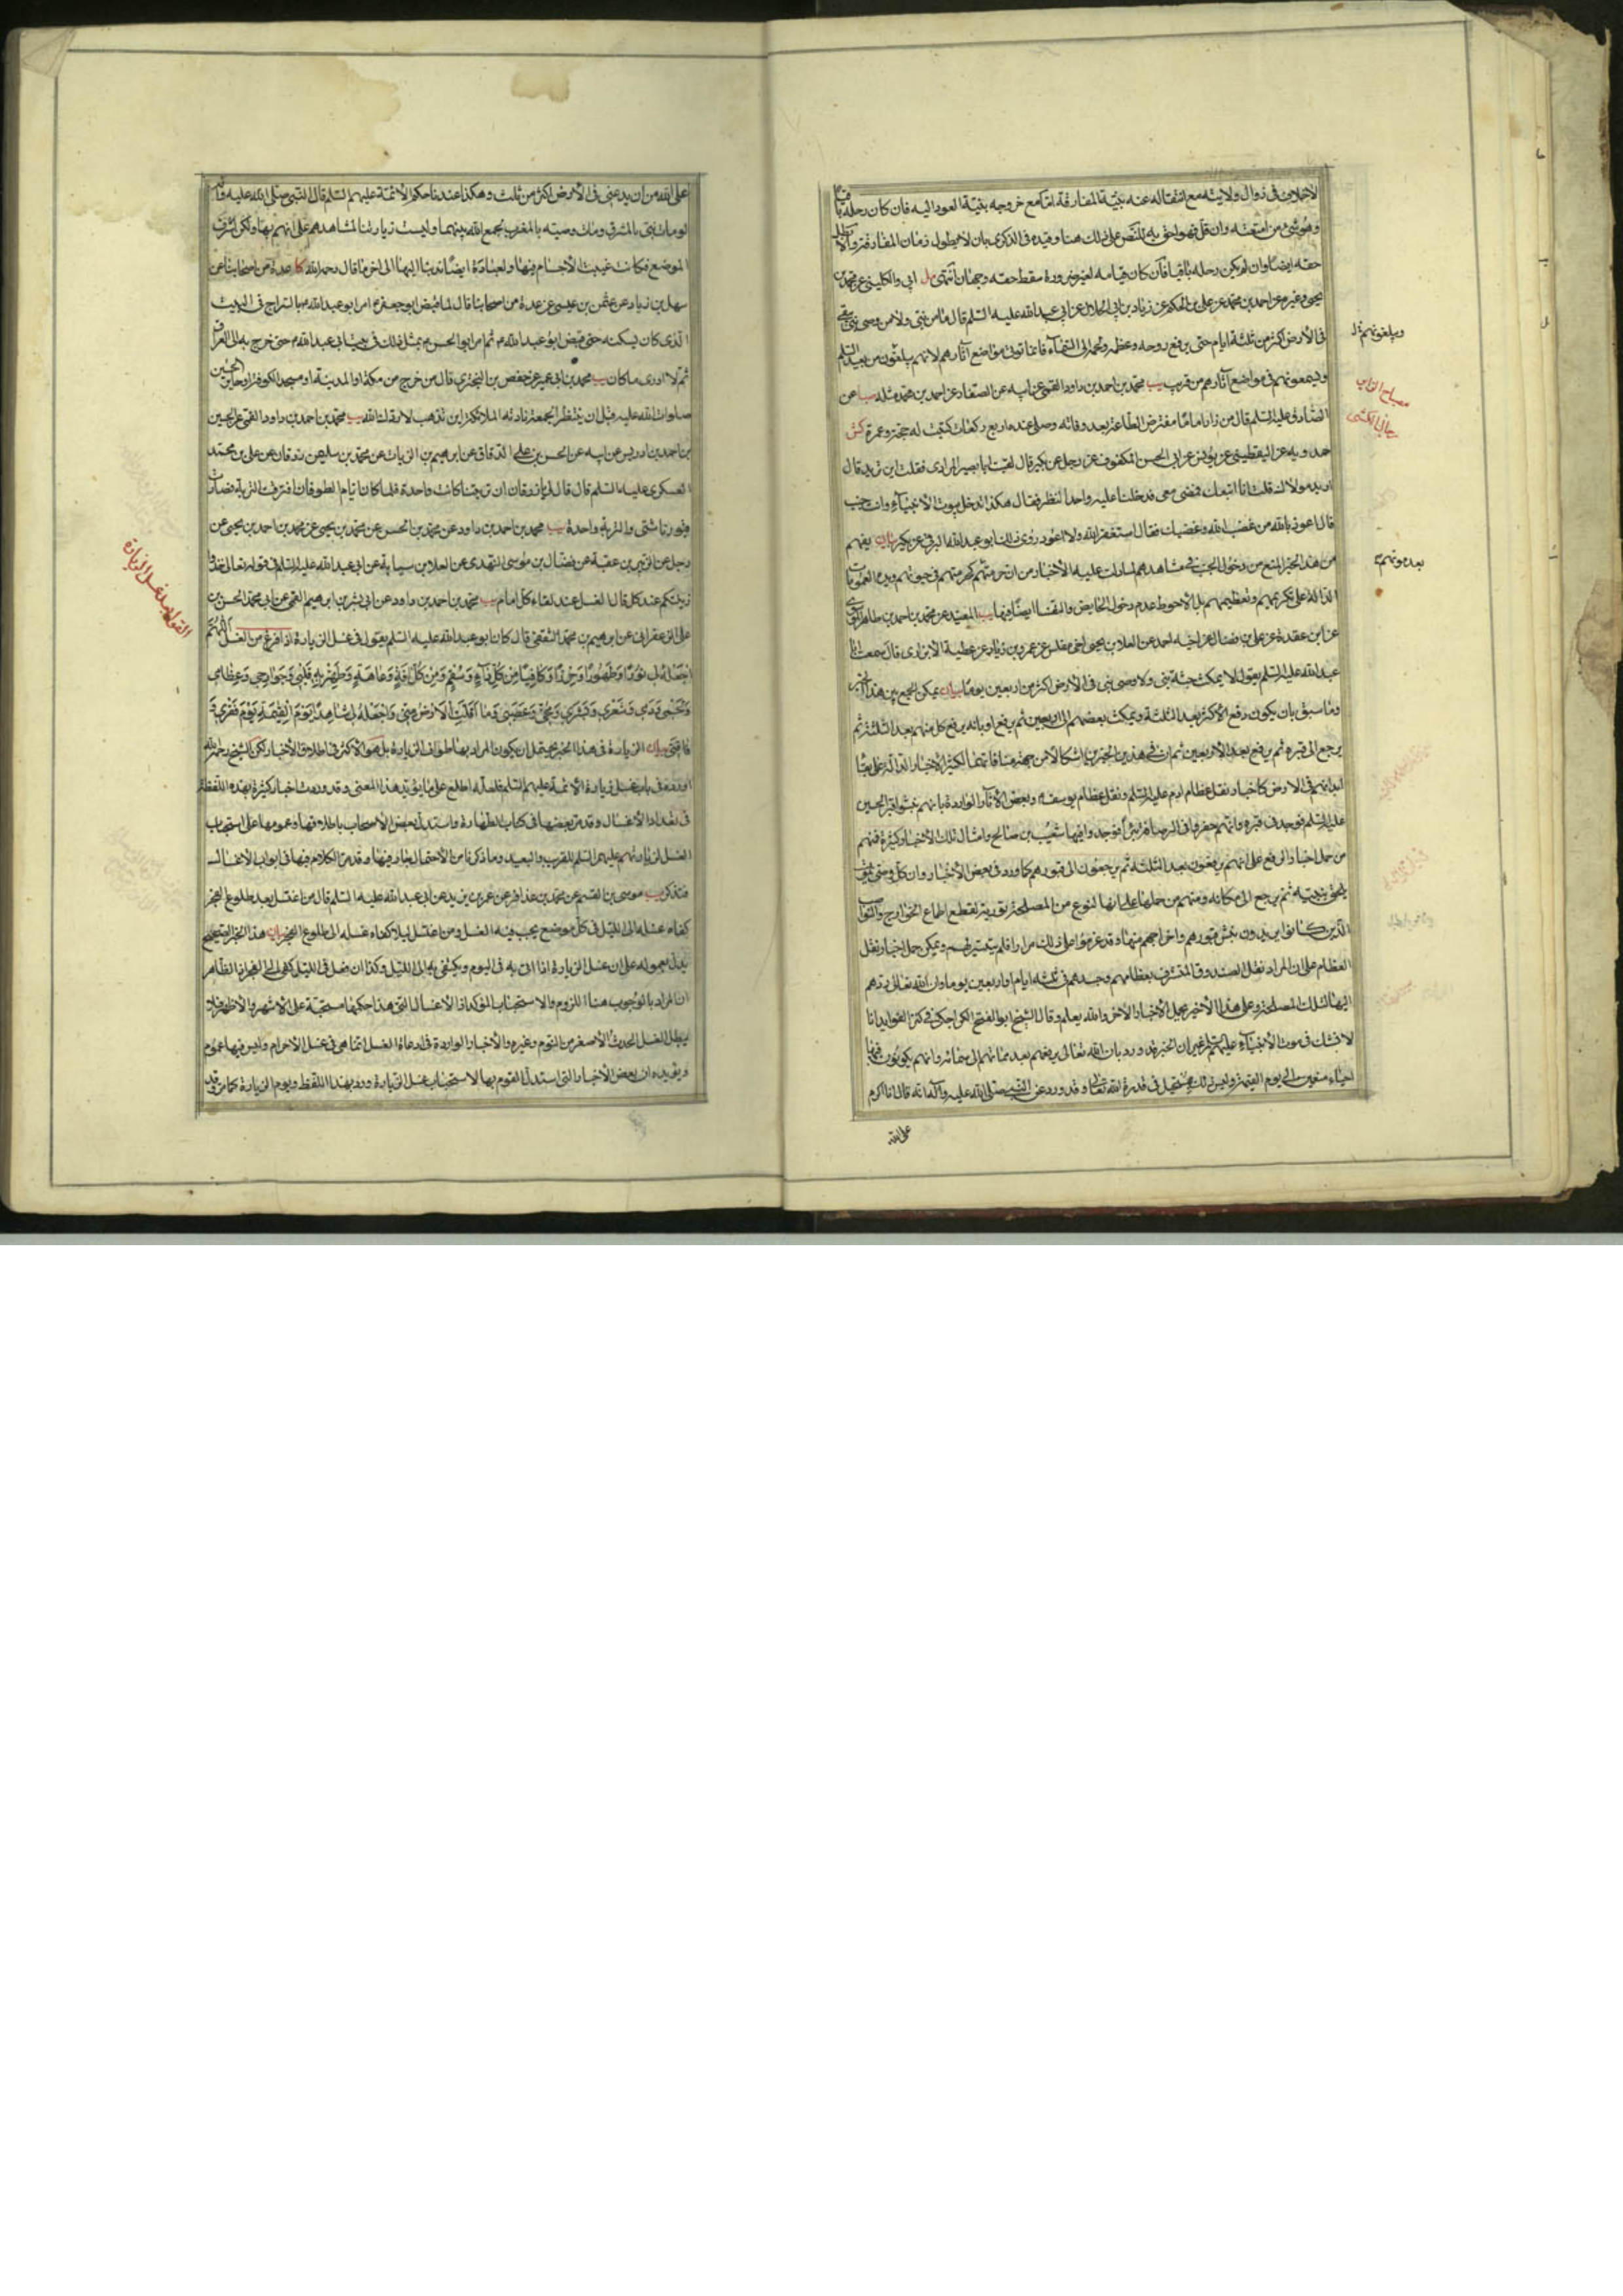 الاخلاف في زوال ولايته مع انتقاله عنه بنية المفارقة اما مع خروجه بنية العود اليه فان كان رحله باقيا
وهو شيء من امتعته وان قل فهو احق به للنص على ذلك هنا وقيده في الذكرى بان لا يطول زمان المفارقة والا بطل
حقه ايضا وان لم يكن رحله باقيا فان كان قيامه لغير ضرورة سقط حقه وجهان انتهى مل ابي والكليني عن محمد بن
يحيى وغيره عن احمد بن محمد عن علي بن الحكم عن زياد بن ابي الحلال عن ابي عبد الله عليه السلم قال ما من نبي ولا من وصي نبي يبقى
في الارض اكثر من ثلثة ايام حتى يرفع روحه وعظمه ولحمه الى السماء فانما تؤتى مواضع آثارهم لانهم يبلغون من بعيد السلم
ويسمعونهم في مواضع آثارهم من قريب يب محمد بن احمد بن داود القمي عن ابيه عن الصفار عن احمد بن محمد مثله صبا عن
الصادق عليه السلم قال من زار اماما مفترض الطاعة بعد وفاته وصلى عنده اربع ركعات كتبت له حجة وعمرة كش
حمدويه عن اليقطيني عن يونس عن ابي الحسن المكفوف عن رجل عن بكير قال لقيت ابا بصير المرادي فقلت اين تريد قال
اريد مولاك قلت انا اتبعك فمضى معي فدخلنا عليه واحد النظر فقال هكذا تدخل بيوت الانبياء وانت جنب
قال اعوذ بالله من غضب الله وغضبك فقال استغفر الله ولا اعود روى ذلك ابو عبد الله البرقي عن بكير بيان يفهم
من هذا الخبر المنع من دخول الجنب في مشاهدهم لما دلت عليه الاخبار من ان حرمتهم كحرمتهم في حيوتهم ويؤيده العمومات
الدالة على تكريمهم وتعظيمهم بل الاحوط عدم دخول الحائض والنفساء ايضا فيها يب المفيد عن محمد بن احمد بن طاهر الموسوي
عن ابن عقدة عن علي بن فضال عن اخيه احمد عن العلا بن يحيى اخي مغلس عن عمرو بن زياد عن عطية الابزاري قال سمعت ابا
عبد الله عليه السلم يقول لا يمكث جثة نبي ولا وصي نبي في الارض اكثر من اربعين يوما بيان يمكن الجمع بين هذا الخبر
وما سبق بان يكون رفع الاكثر بعد الثلثة ويمكث بعضهم الى اربعين ثم يرفع او بانه يرفع كل منهم بعد الثلثة ثم
يرجع الى قبره ثم يرفع بعد الاربعين ثم ان في هذين الخبرين اشكالا من جهة منافاتهما لكثير الاخبار الدالة على بقاء
ابدانهم في الارض كاخبار نقل عظام ادم عليه السلم ونقل عظام يوسف وبعض الآثار الواردة بانهم نبشوا قبر الحسين
عليه السلم فوجد في قبره وانهم حفروا في الرصافة بئرا فوجدوا فيها شعيب بن صالح وامثال تلك الاخبار كثيرة فمنهم
من حمل اخبار الرفع على انهم يرفعون بعد الثلثة ثم يرجعون الى قبورهم كما ورد في بعض الاخبار وان كل وصي يموت
يلحق بنبيه ثم يرجع الى مكانه ومنهم من حملها على انها لنوع من المصلحة تورية لقطع اطماع الخوارج والنواصب
الذين كانوا يريدون نبش قبورهم واخراجهم منها وقد عزموا على ذلك مرارا فلم يتيسر لهم ويمكن حمل اخبار نقل
العظام على ان المراد نقل الصندوق المتشرف بعظامهم وجسدهم في ثلثة ايام او اربعين يوما وان الله تعالى ردهم
اليها لتلك المصلحة وعلى هذا الاخير يحمل الاخبار الاخر والله يعلم وقال الشيخ ابو الفتح الكراجكي في كنز الفوايد انا
لا نشك في موت الانبياء عليهم السلم غير ان الخبر قد ورد بان الله تعالى يرفعهم بعد مماتهم الى سمائه وانهم يكونون فيها
احياء متنعمين الى يوم القيمة وليس ذلك بمستحيل في قدرة الله تعالى وقد ورد عن النبي صلى الله عليه وآله انه قال انا اكرم
على الله
ويبلغونهم
مصباح الزاير
رجال الكشي
بعد موتهم
على الله من ان يدعني في الارض اكثر من ثلث وهكذا عندنا حكم الائمة عليهم السلم قال النبي صلى الله عليه وآله
لو مات نبي بالمشرق ومات وصيه بالمغرب لجمع الله بينهما وليست زيارتنا لمشاهدهم على انهم بها ولكن لشرف
الموضع فكانت غيبت الاجسام فيها ولعبادة ايضا ندبنا اليها الى اخر ما قال رحمه الله كا عدة من اصحابنا عن
سهل بن زياد عن عثمن بن عيسى عن عدة من اصحابنا قال لما قبض ابو جعفر امر ابو عبد الله بالسراج في البيت
الذي كان يسكنه حتى قبض ابو عبد الله ثم امر ابو الحسن بمثل ذلك في بيت ابي عبد الله حتى خرج به الى العراق
ثم لا ادري ما كان يب محمد بن ابي عمير عن حفص بن البختري قال من خرج من مكة او المدينة او مسجد الكوفة او حاير الحسين
صلوات الله عليه قبل ان ينتظر الجمعة نادته الملائكة اين تذهب لا ردك الله يب محمد بن احمد بن داود القمي عن الحسين
بن احمد بن ادريس عن ابيه عن الحسن بن علي الدقاق عن ابرهيم بن الزيات عن محمد بن سليمن زرقان عن علي بن محمد
العسكري عليه السلم قال قال لي يا زرقان ان تربتنا كانت واحدة فلما كان ايام الطوفان افترقت التربة فصارت
قبورنا شتى والتربة واحدة يب محمد بن احمد بن داود عن محمد بن الحسن عن محمد بن يحيى عن محمد بن احمد بن يحيى عن
رجل عن الزبير بن عقبة عن فضال بن موسى النهدي عن العلا بن سيابة عن ابي عبد الله عليه السلم في قوله تعالى خذوا
زينتكم عند كل قال الغسل عند لقاء كل امام يب محمد بن احمد بن داود عن ابي بشر بن ابرهيم القمي عن ابي محمد الحسن بن
علي الزعفراني عن ابرهيم بن محمد الثقفي قال كان ابو عبد الله عليه السلم يقول في غسل الزيارة اذا فرغ من الغسل اللهم
اجعله لي نورا وطهورا وحرزا وكافيا من كل داء وسقم ومن كل آفة وعاهة وطهر به قلبي وجوارحي وعظامي
ولحمي ودمي وشعري وبشري ومخي وعصبي وما اقلت الارض مني واجعله لي شاهدا يوم القيمة يوم فقري
وفاقتي بيان الزيارة في هذا الخبر يحتمل ان يكون المراد بها طواف الزيارة بل هو الاكثر في اطلاق الاخبار لكن الشيخ رحمه الله
اورده في باب غسل زيارة الائمة عليهم السلم فلعله اطلع على ما يؤيد هذا المعنى وقد وردت اخبار كثيرة بهذه اللفظة
في تعداد الاغسال وقد مر بعضها في كتاب الطهارة واستدل بعض الاصحاب باطلاقها وعمومها على استحباب
الغسل لزيارتهم عليهم السلم للقريب والبعيد وما ذكرنا من الاحتمال جار فيها وقد مر الكلام فيها في ابواب الاغسال
فتذكر يب موسى بن القسم عن محمد بن عذافر عن عمر بن يزيد عن ابي عبد الله عليه السلم قال من اغتسل بعد طلوع الفجر
كفاه غسله الى الليل في كل موضع يجب فيه الغسل ومن اغتسل ليلا كفاه غسله الى طلوع الفجر بيان هذا الخبر الصحيح
يدل بعمومه على ان غسل الزيارة اذا اتى به في اليوم يكتفى به الى الليل وكذا ان فعل في الليل كفى الى الفجر والظاهر
ان المراد بالوجوب هنا اللزوم والاستحباب المؤكد اذ الاغسال التي هذا حكمها مستحبة على الاشهر والاظهر فلا
يبطل الغسل الحدث الاصغر من النوم وغيره والاخبار الواردة في اعادة الغسل انما هي في غسل الاحرام وليس فيها عموم
ويؤيده ان بعض الاخبار التي استدل القوم بها لاستحباب غسل الزيارة ورد بهذا اللفظ ويوم الزيارة كما مر وقد
القول في غسل الزيارة